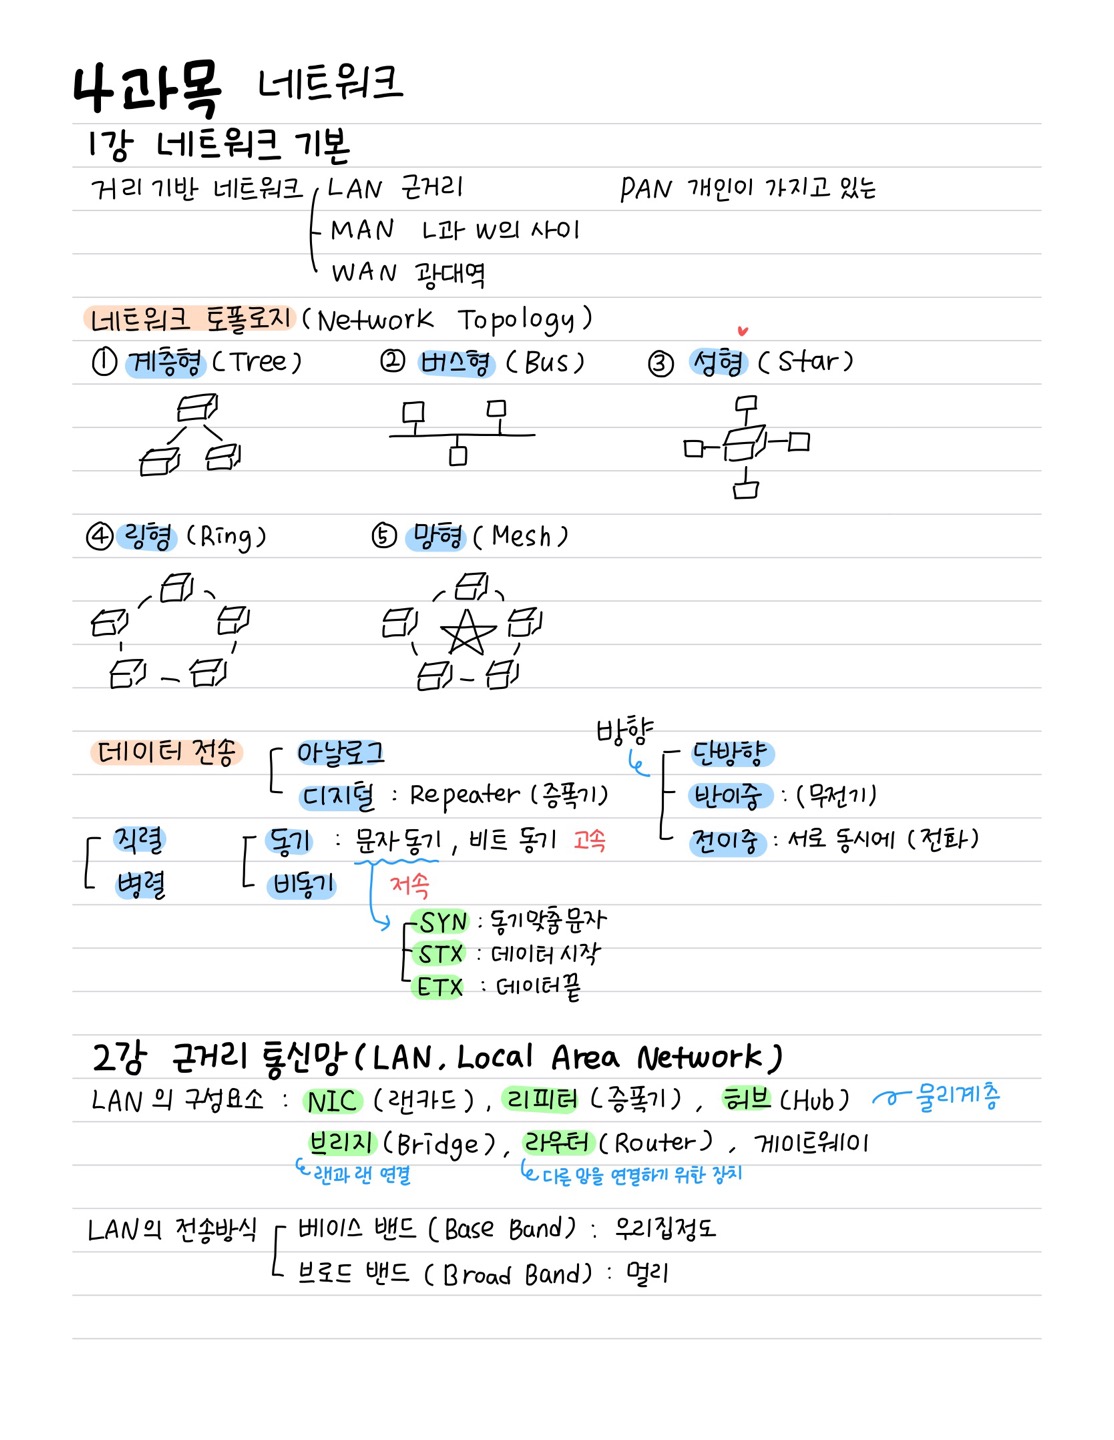 4과목 네트워크
1강 네트워크 기본
거리 기반 네트워크 LAN 근거리 PAN 개인이 가지고 있는
MAN L과 W의 사이
WAN 광대역
네트워크 토폴로지 (Network Topology)
① 계층형 (Tree) ② 버스형 (Bus) ③ 성형 (Star)
④ 링형 (Ring) ⑤ 망형 (Mesh)
방향
데이터 전송 아날로그 단방향
디지털 : Repeater (증폭기) 반이중 : (무전기)
직렬 동기 : 문자동기, 비트 동기 고속 전이중 : 서로 동시에 (전화)
병렬 비동기 저속
SYN : 동기맞춤문자
STX : 데이터 시작
ETX : 데이터 끝
2강 근거리 통신망 (LAN, Local Area Network)
LAN 의 구성요소 : NIC (랜카드), 리피터 (증폭기), 허브 (Hub) 물리계층
브리지 (Bridge), 라우터 (Router), 게이트웨이
랜과 랜 연결 다른 망을 연결하기 위한 장치
LAN의 전송방식 베이스 밴드 (Base Band) : 우리집정도
브로드 밴드 (Broad Band) : 멀리